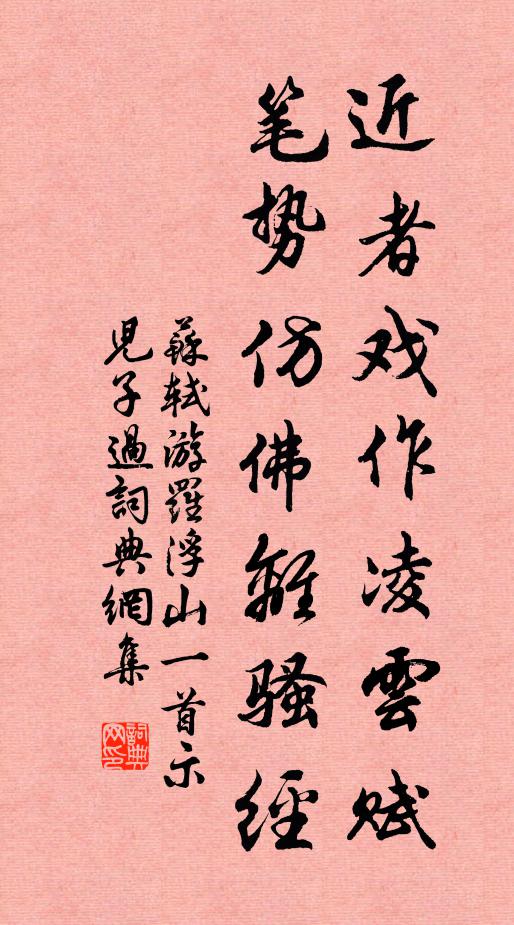 近者戏作凌雲赋
笔势仿佛離骚經
蘇軾游羅浮山一首示
兒子過詞典網集
詞典
网印